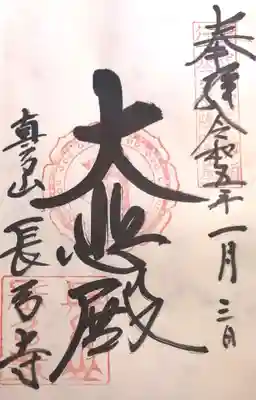 奉拝 令和五年 一月 三日
大悲殿
真弓山 長弓寺